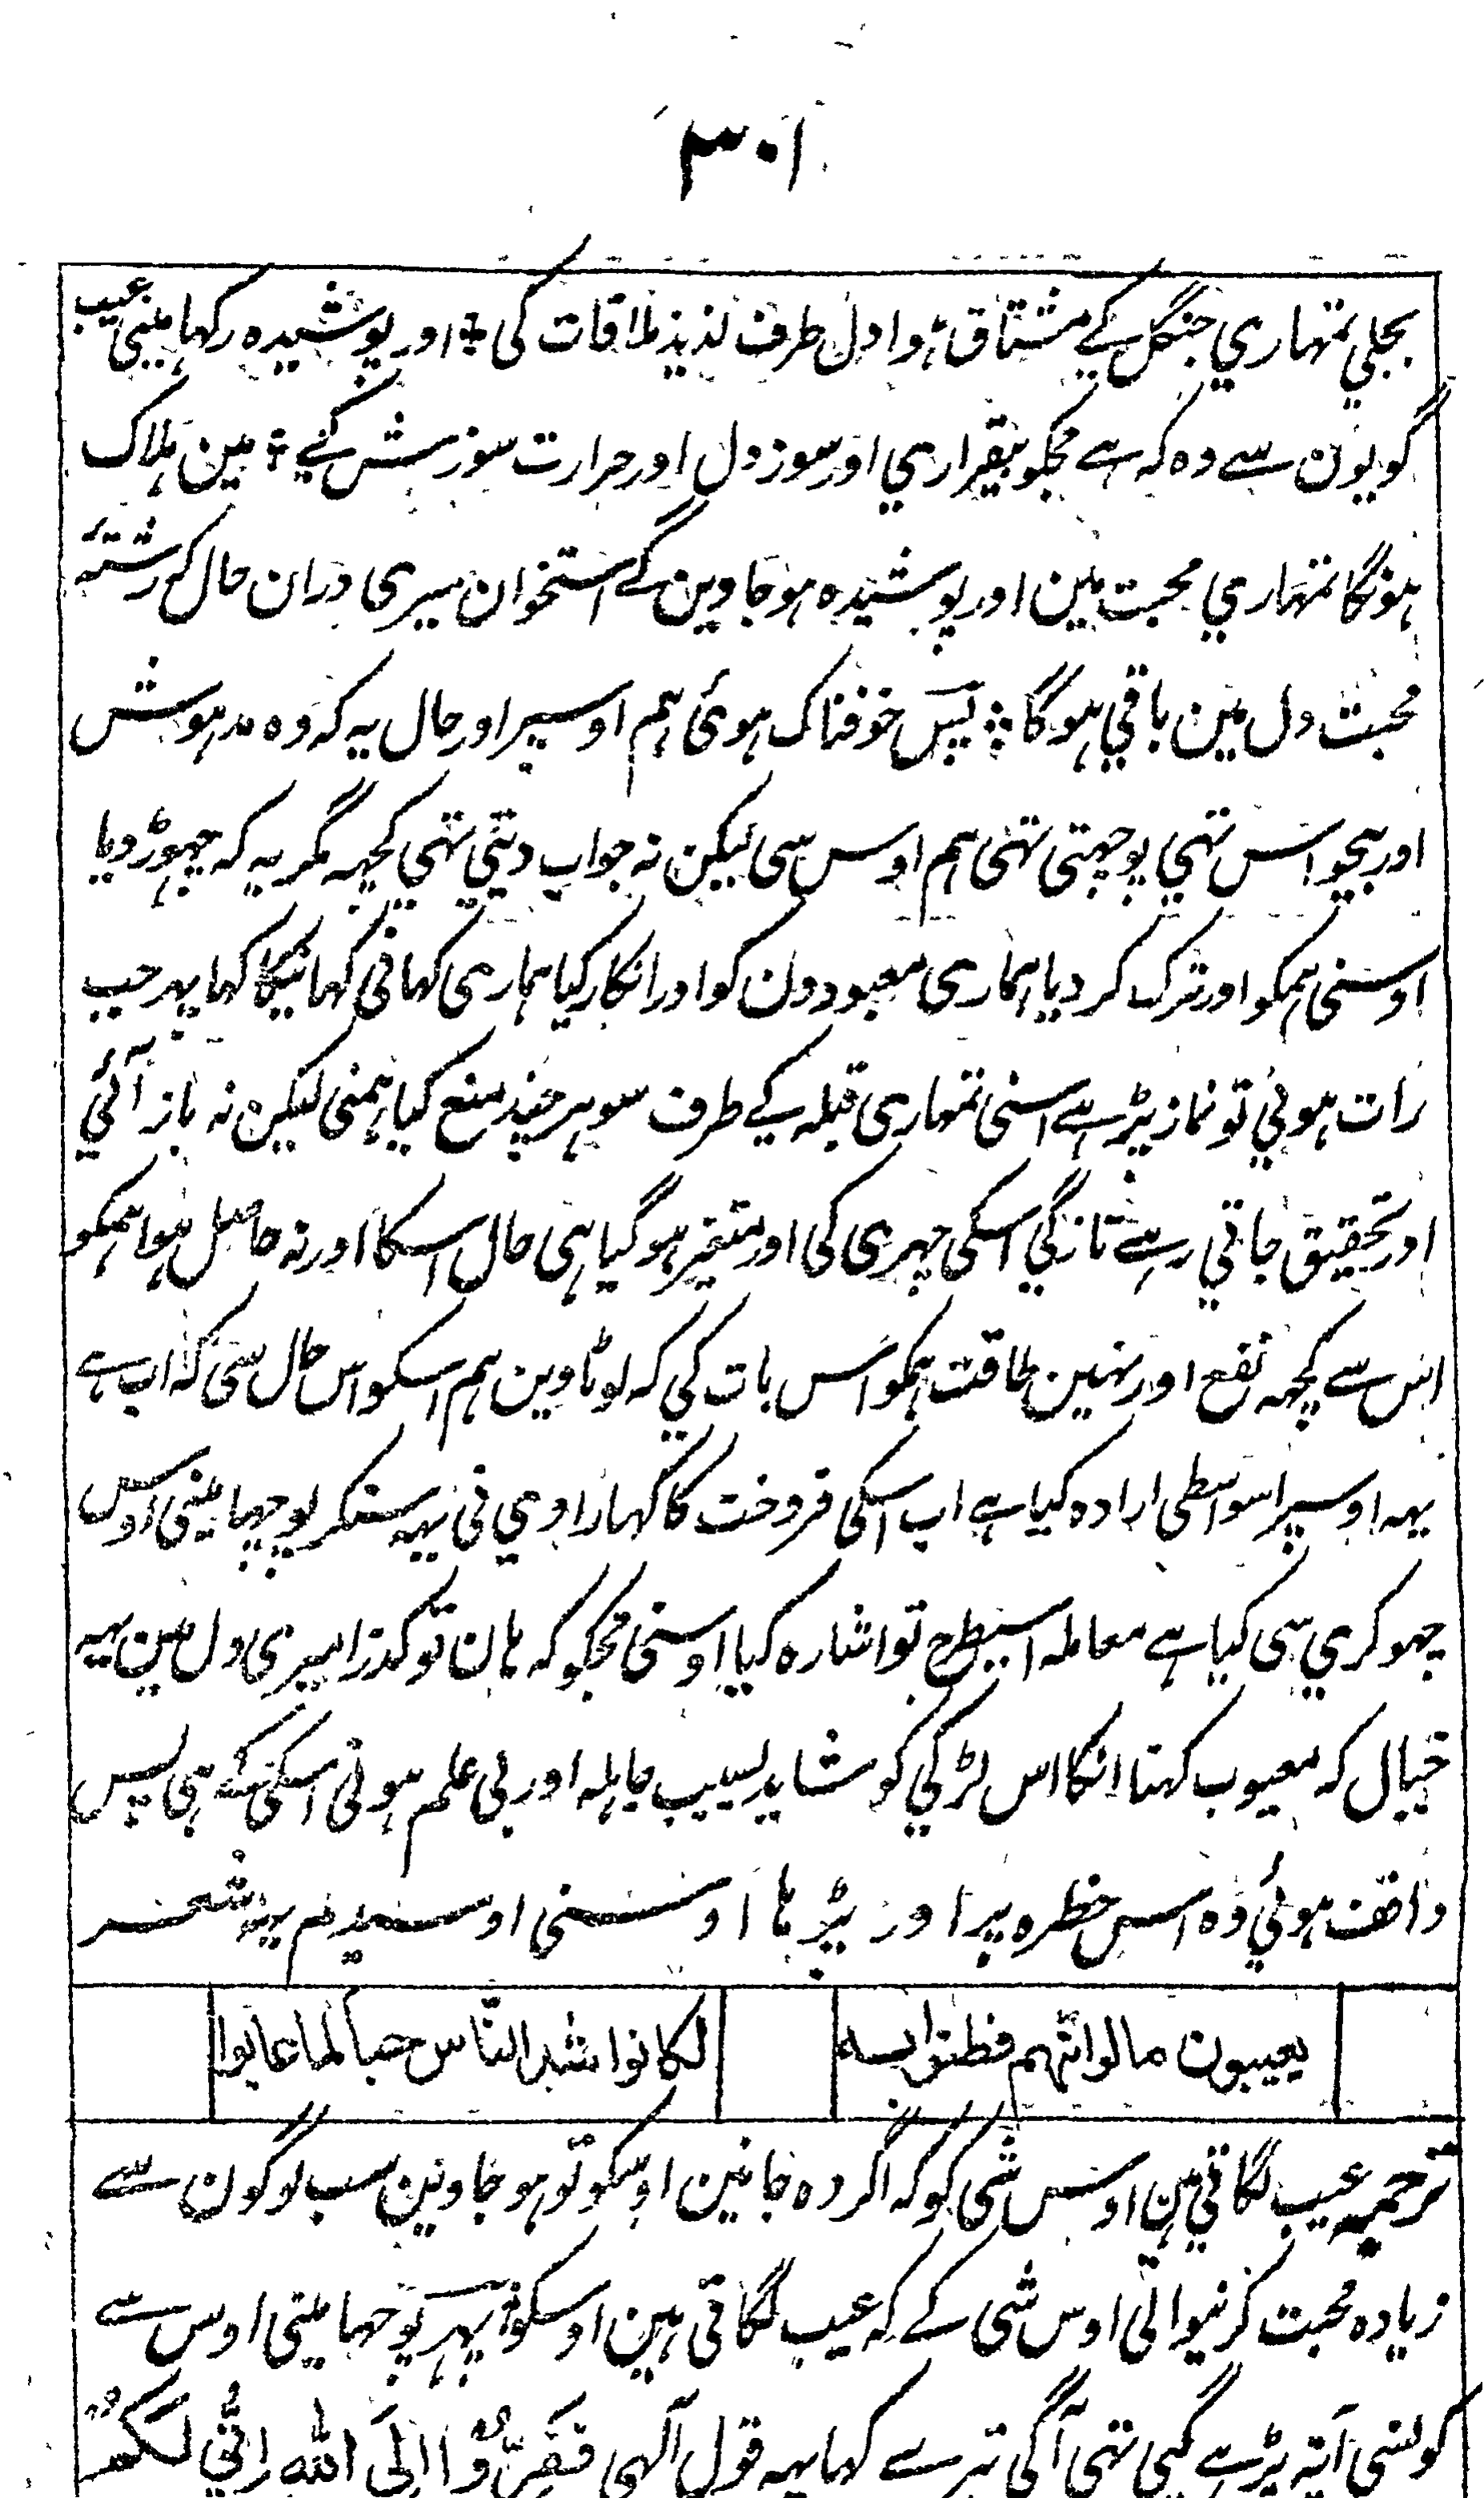 ۳۰۱
بجلي تمهاري جنگل کے مشتاق ہوا دل طرف لذیذ ملاقات کی ؛ اور پوشیده رکها مینی عیب
گویون سے وه که ہے مجکو بیقراري اور سوز دل اور حرارت سوزش کے ؛ مین ہلاک
ہونگا تمهاري محبت مین اور پوشیده ہو جاوین گے استخوان میری دران حال که رشتہ
محبت دل مین باقي ہوگا ؛ پس خوفناک ہوئی ہم اوسپر اور حال یہ که وه مدہوش
اور بیحواس تهي پوچهتی تهی ہم اوس سی لیکن نہ جواب دیتي تهي کچہہ مگر یہ که چهوڑ دیا
اوسنی ہمکو اور ترک کر دیا ہماری معبودون کو اور انکار کیا ہماری کهانی کهانیکا کها پهر جب
رات ہوئي تو نماز پڑہے اسنی تمهاری قبلہ کے طرف سو ہر چند منع کیا ہمنی لیکن نہ باز آئي
اور تحقیق جاتي رہے تازگي اسکی چہری کی اور متغیر ہو گیا ہی حال اسکا اور نہ حاصل ہوا ہمکو
اس سے کچہہ نفع اور نہین طاقت ہمکو اس بات کي که لوٹاوین ہم اسکو اس حال سی که اب ہے
یہہ اوسپر اسواسطی اراده کیا ہے اب اسکی فروخت کا کها راوي نی یہہ سنکر پوچها مینی اوس
چهوکري سی کیا ہے معاملہ اسیطرح تو اشاره کیا اوسنی مجکو که ہان تو گذرا میری دل مین یہہ
خیال که معیوب کہنا انکا اس لڑکي کو شاید بسبب جاہلہ اور بی علم ہونی اسکی کے ہی پس
واقف ہوئي وه اس خطره پر اور پڑہا اوسنی اوسیدم یہہ شعر
یعیبون ما لو انهم فطنوا به لکانوا اشد الناس حبا لما عابوا
ترجمہ عیب لگاتي ہین اوس شی کو که اگر وه جانین اوسکو تو ہو جاوین سب لوگون سے
زیاده محبت کرنیوالی اوس شی کے که عیب لگاتی ہین اوسکو پهر پوچها مینی اوس سے
کونسی آیة پڑہے گیی تهی آگی تیرے کها یہہ قول آلهی فَفِرُّوْا اِلَی الله اِنّي لَكُمْ